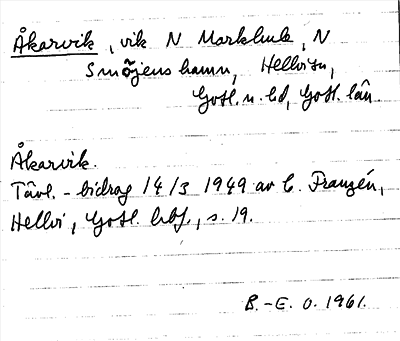 Åkarvik, vik N Markhuk, N
Smöjens hamn, Hellvi sn,
Gotl. n. hd, Gotl. län.
Åkarvik.
Tävl.-bidrag 14/3 1949 av C. Franzén,
Hellvi, Gotl. hbf., s. 19.
B.-E. O. 1961.